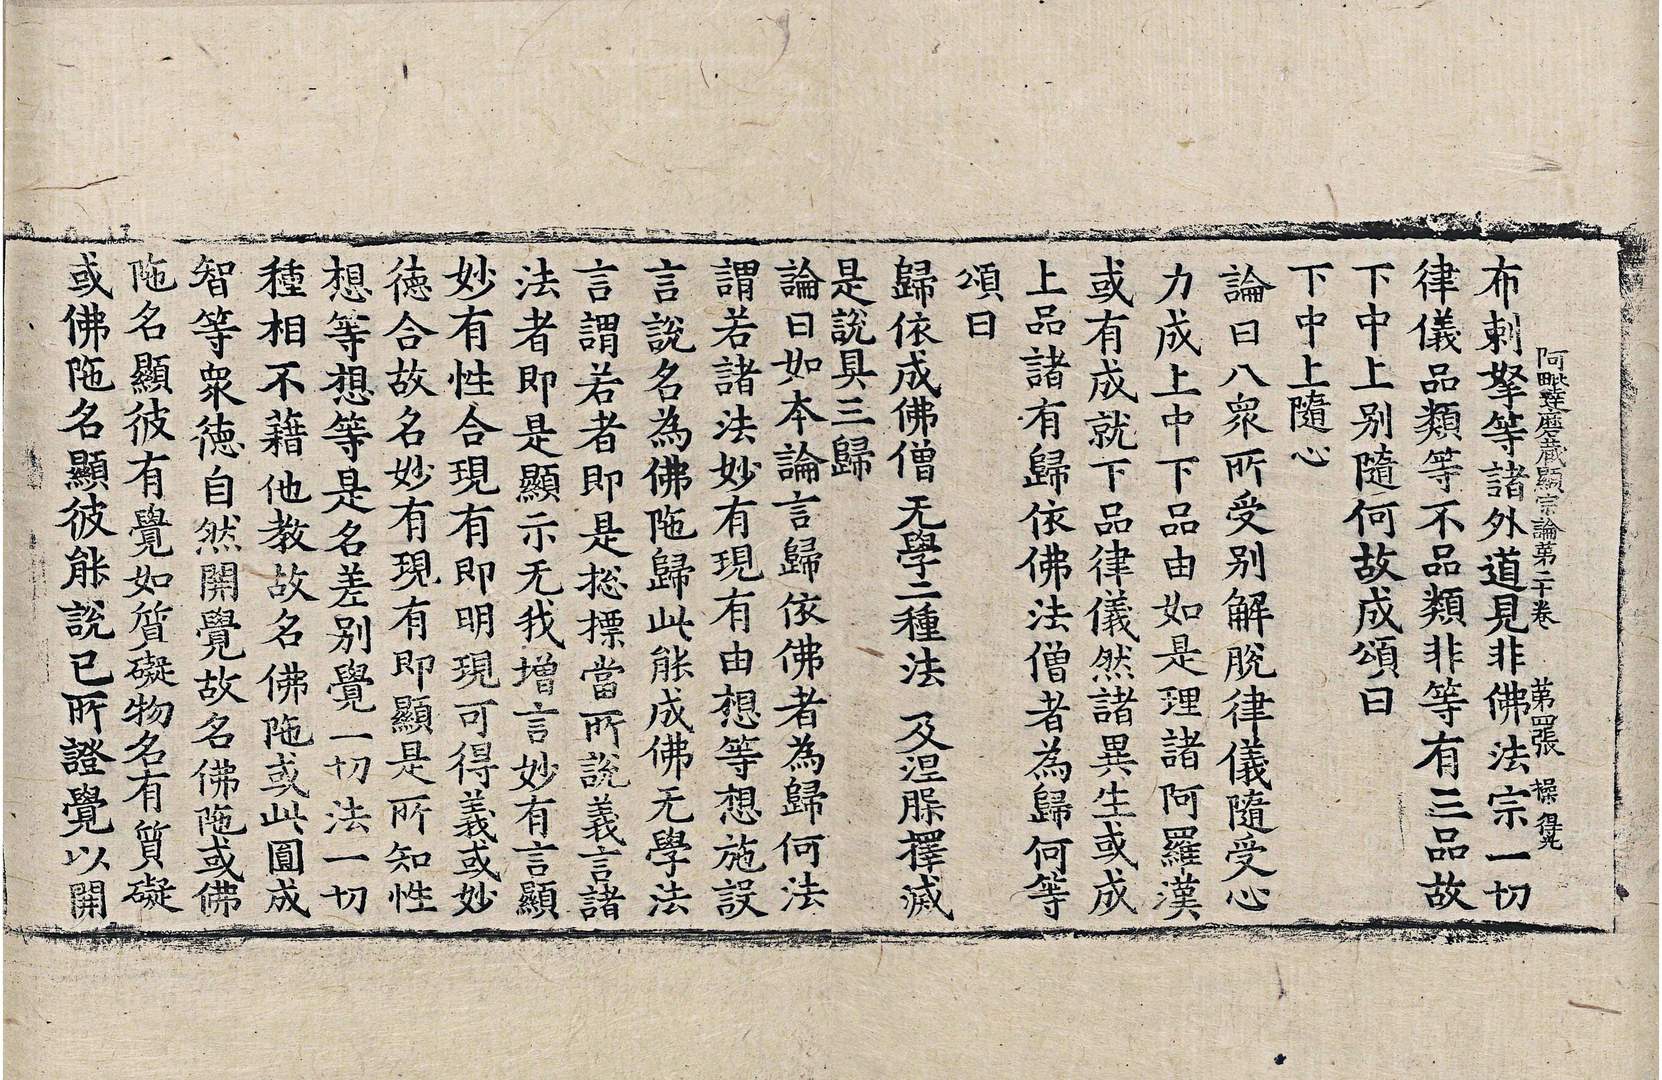 阿毗達磨藏顯宗論苐二十卷　苐四張　操　得光
布刺拏等諸外道見非佛法宗一切
律儀品類等不品類非等有三品故
下中上别隨何故成頌曰
下中上隨心
論曰八衆所受别解脫律儀隨受心
力成上中下品由如是理諸阿羅漢
或有成就下品律儀然諸異生或成
上品諸有歸依佛法僧者為歸何等
頌曰
歸依成佛僧　无學二種法　及涅膝擇滅
是說具三歸
論曰如本論言歸依佛者為歸何法
謂若諸法妙有現有由想等想施設
言說名為佛陁歸此能成佛无學法
言謂若者即是揔摽當所說義言諸
法者即是顯示无我增言妙有言顯
妙有性合現有即明現可得義或妙
徳合故名妙有現有即顯是所知性
想等想等是名差别覺一切法一切
種相不藉他教故名佛陁或此圓成
智等衆徳自然開覺故名佛陁或佛
陁名顯彼有覺如質礙物名有質礙
或佛陁名顯彼能說已所證覺以開